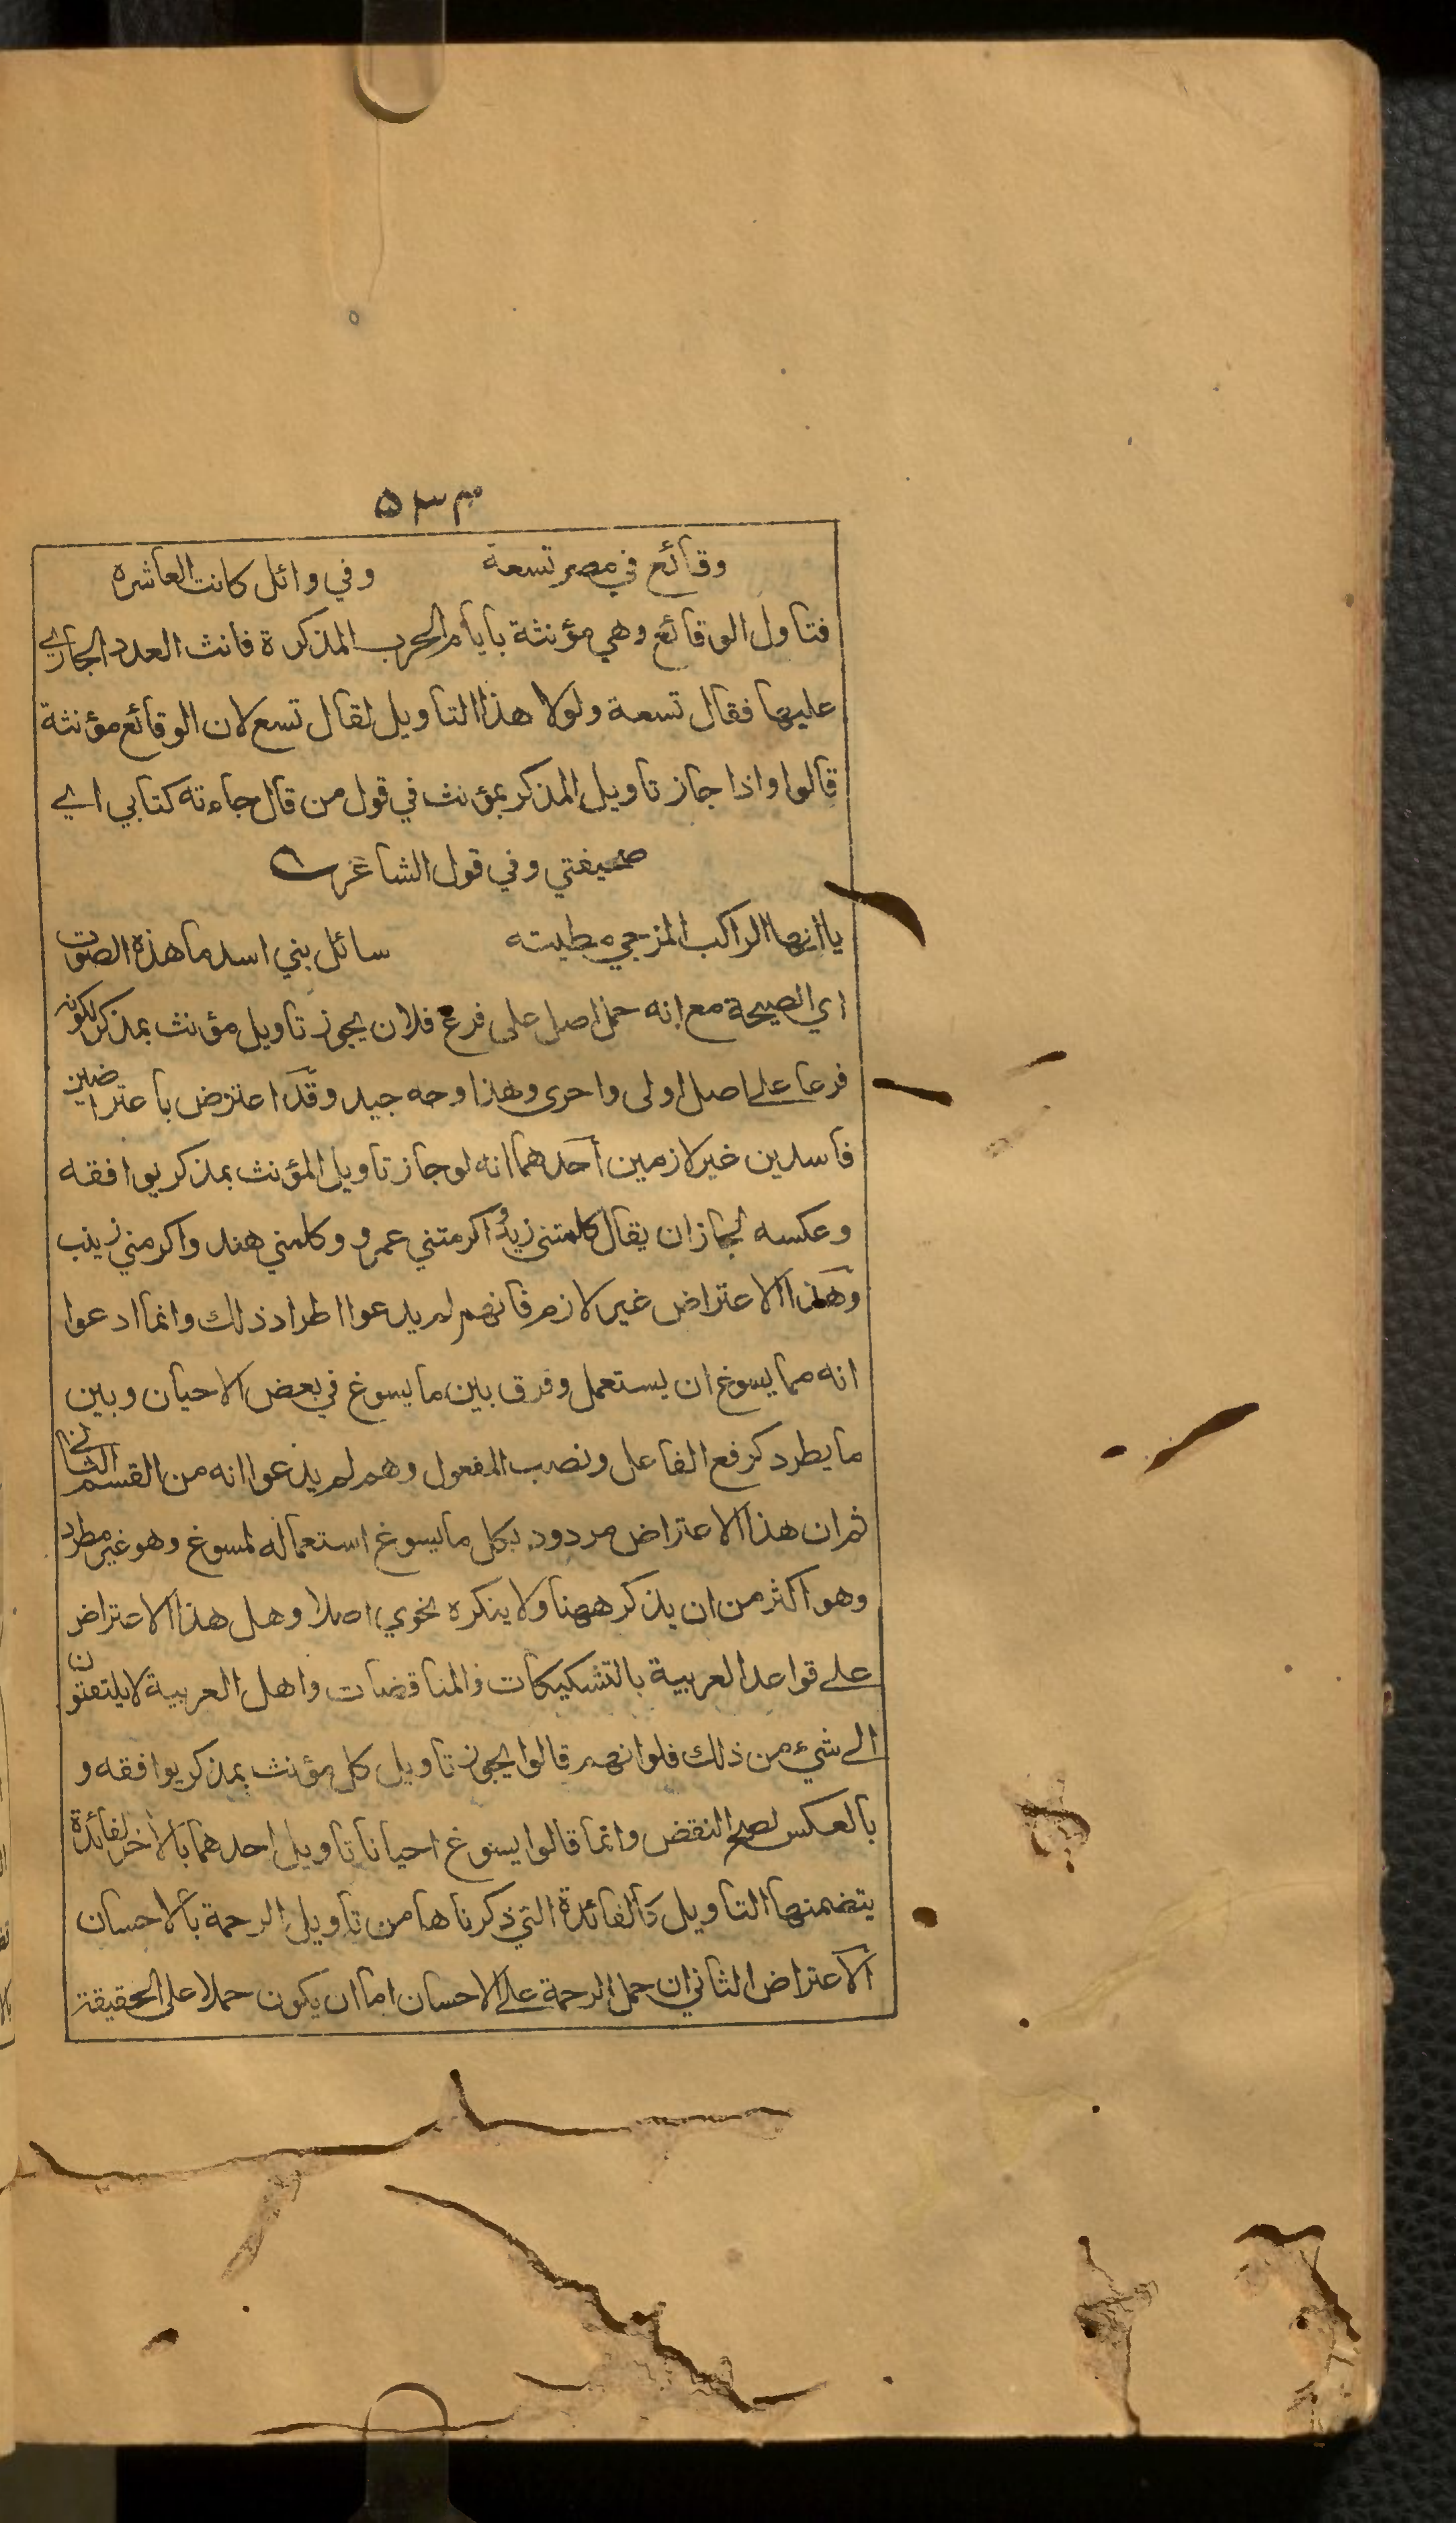 ۵۳۳
وقائع في مصر تسعة وفي وائل كانت العاشره
فتاول الوقائع وهي مؤنثة بايام الحرب المذكرة فانث العدد الجاري
عليها فقال تسعة ولولا هذا التاويل لقال تسع لان الوقائع مؤنثة
قالوا واذا جاز تاويل المذكر بمؤنث في قول من قال جاءته كتابي اي
صحيفتي وفي قول الشاعر
يا ايها الراكب المزجي مطيته سائل بني اسد ما هذه الصوت
اي الصيحة مع انه حمل اصل على فرع فلان يجوز تاويل مؤنث بمذكر لكونه
فرعا على اصل اولى واحرى وهذا وجه جيد وقد اعترض باعتراضين
فاسدين غير لازمين احدهما انه لو جاز تاويل المؤنث بمذكر يوافقه
وعكسه لجاز ان يقال كلمتني زيد واكرمتني عمرو وكلمني هند واكرمني زينب
وهذا الاعتراض غير لازم فانهم لم يدعوا اطراد ذلك وانما ادعوا
انه مما يسوغ ان يستعمل وفرق بين ما يسوغ في بعض الاحيان وبين
ما يطرد كرفع الفاعل ونصب المفعول وهم لم يدعوا انه من القسم الثاني
ثم ان هذا الاعتراض مردود بكل ما يسوغ استعماله لمسوغ وهو غير مطرد
وهو اكثر من ان يذكر ههنا ولا ينكره نحوي اصلا وهل هذا الاعتراض
على قواعد العربية بالتشكيكات والمناقضات واهل العربية لا يلتفتون
الى شيء من ذلك فلو انهم قالوا يجوز تاويل كل مؤنث بمذكر يوافقه و
بالعكس لصح النقض وانما قالوا يسوغ احيانا تاويل احدهما بالاخر لفائدة
يتضمنها التاويل كالفائدة التي ذكرناها من تاويل الرحمة بالاحسان
الاعتراض الثاني ان حمل الرحمة على الاحسان اما ان يكون حملا على الحقيقة